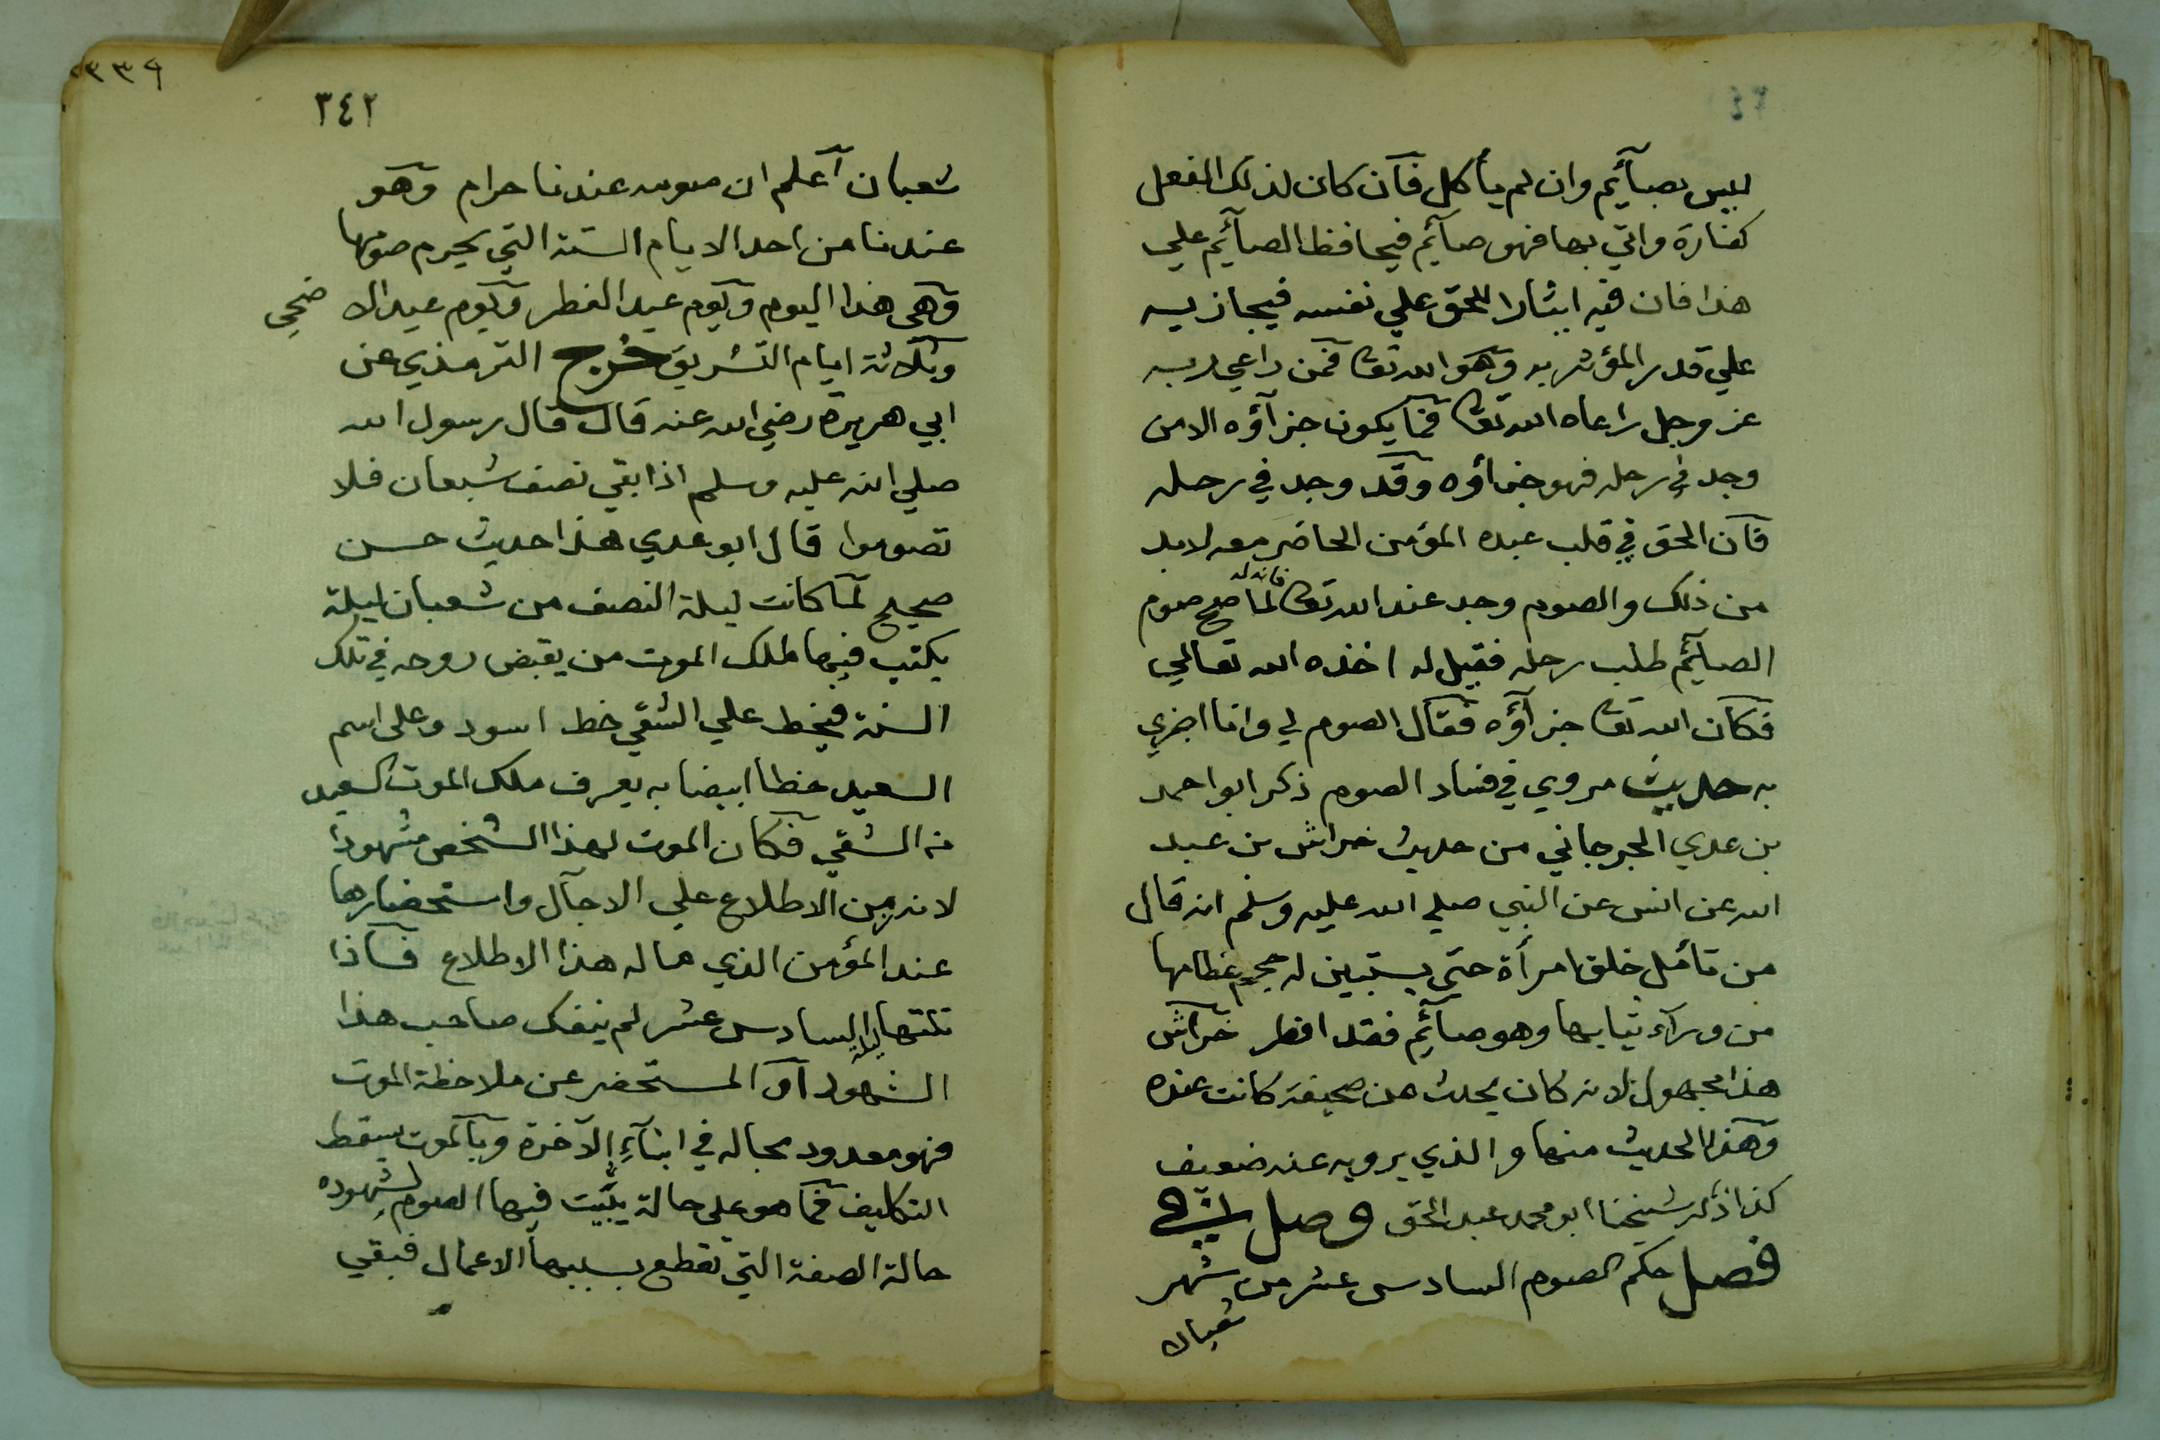 ليس بصآئم وان لم يأكل فآن كان لذلك الفعل
كفارة واتي بها فهو صآئم فيحافظ الصآئم علي
هذا فان فيه ايثارا للحق علي نفسه فيجازيه
علي قدر المؤثر به وهو الله تعا فمن راعي لربه
عز وجل راعاه الله تعا فما يكون جزآؤه الا من
وجد في رحله فهو جزاؤه وقد وجد في رحله
فآن الحق في قلب عبده المؤمن الحاضر معه لابد
من ذلك والصوم وجد عند الله تعا فانه له لما صح صوم
الصآئم طلب رحله فقيل له اخذه الله تعالي
فكان الله تعا جزآؤه فقال الصوم لي وانا اجزي
به حديث مروي في فساد الصوم ذكر ابو احمد
بن عدي الجرجاني من حديث خراش بن عبد
الله عن انس عن النبي صلي الله عليه وسلم انه قال
من تأمل خلق امرأة حتي يستبين له حجم عظامها
من ورآء ثيابها وهو صآئم فقد افطر خراش
هذا مجهول لانه كان يحدث من صحيفة كانت عنده
وهذا الحديث منها والذي يرويه عنه ضعيف
كذا ذكر شيخنا ابو محمد عبد الحق وصل في
فصل حكم الصوم السادس عشر من شهر
شعبان
٣٤٢
شعبان اعلم ان صومه عندنا حرام وهو
عندنا من احد الايام الستة التي يحرم صومها
وهي هذا اليوم ويوم عيد الفطر ويوم عيد الاضحي
وثلاثة ايام التشريق خرج الترمذي عن
ابي هريرة رضي الله عنه قال قال رسول الله
صلي الله عليه وسلم اذا بقي نصف شعبان فلا
تصوموا قال ابو عدي هذا حديث حسن
صحيح لما كانت ليلة النصف من شعبان ليلة
يكتب فيها ملك الموت من يقبض روحه في تلك
السنة فيخط علي الشقي خط اسود وعلي اسم
السعيد خطا ابيضا به يعرف ملك الموت السعيد
من الشقي فكان الموت لهذا الشخص مشهودا
لانه زمن الاطلاع علي الاجآل واستحضارها
عند المؤمن الذي ماله هذا الاطلاع فآذا
تلتها ليلة السادس عشر لم ينفك صاحب هذا
الشهود او المستحضر عن ملاحظة الموت
فهو معدود بحاله في ابنآء الآخرة وبآلموت يسقط
التكليف فما هو علي حالة يبيت فيها الصوم لشهوده
حالة الصفة التي تقطع بسببها الاعمال فبقي